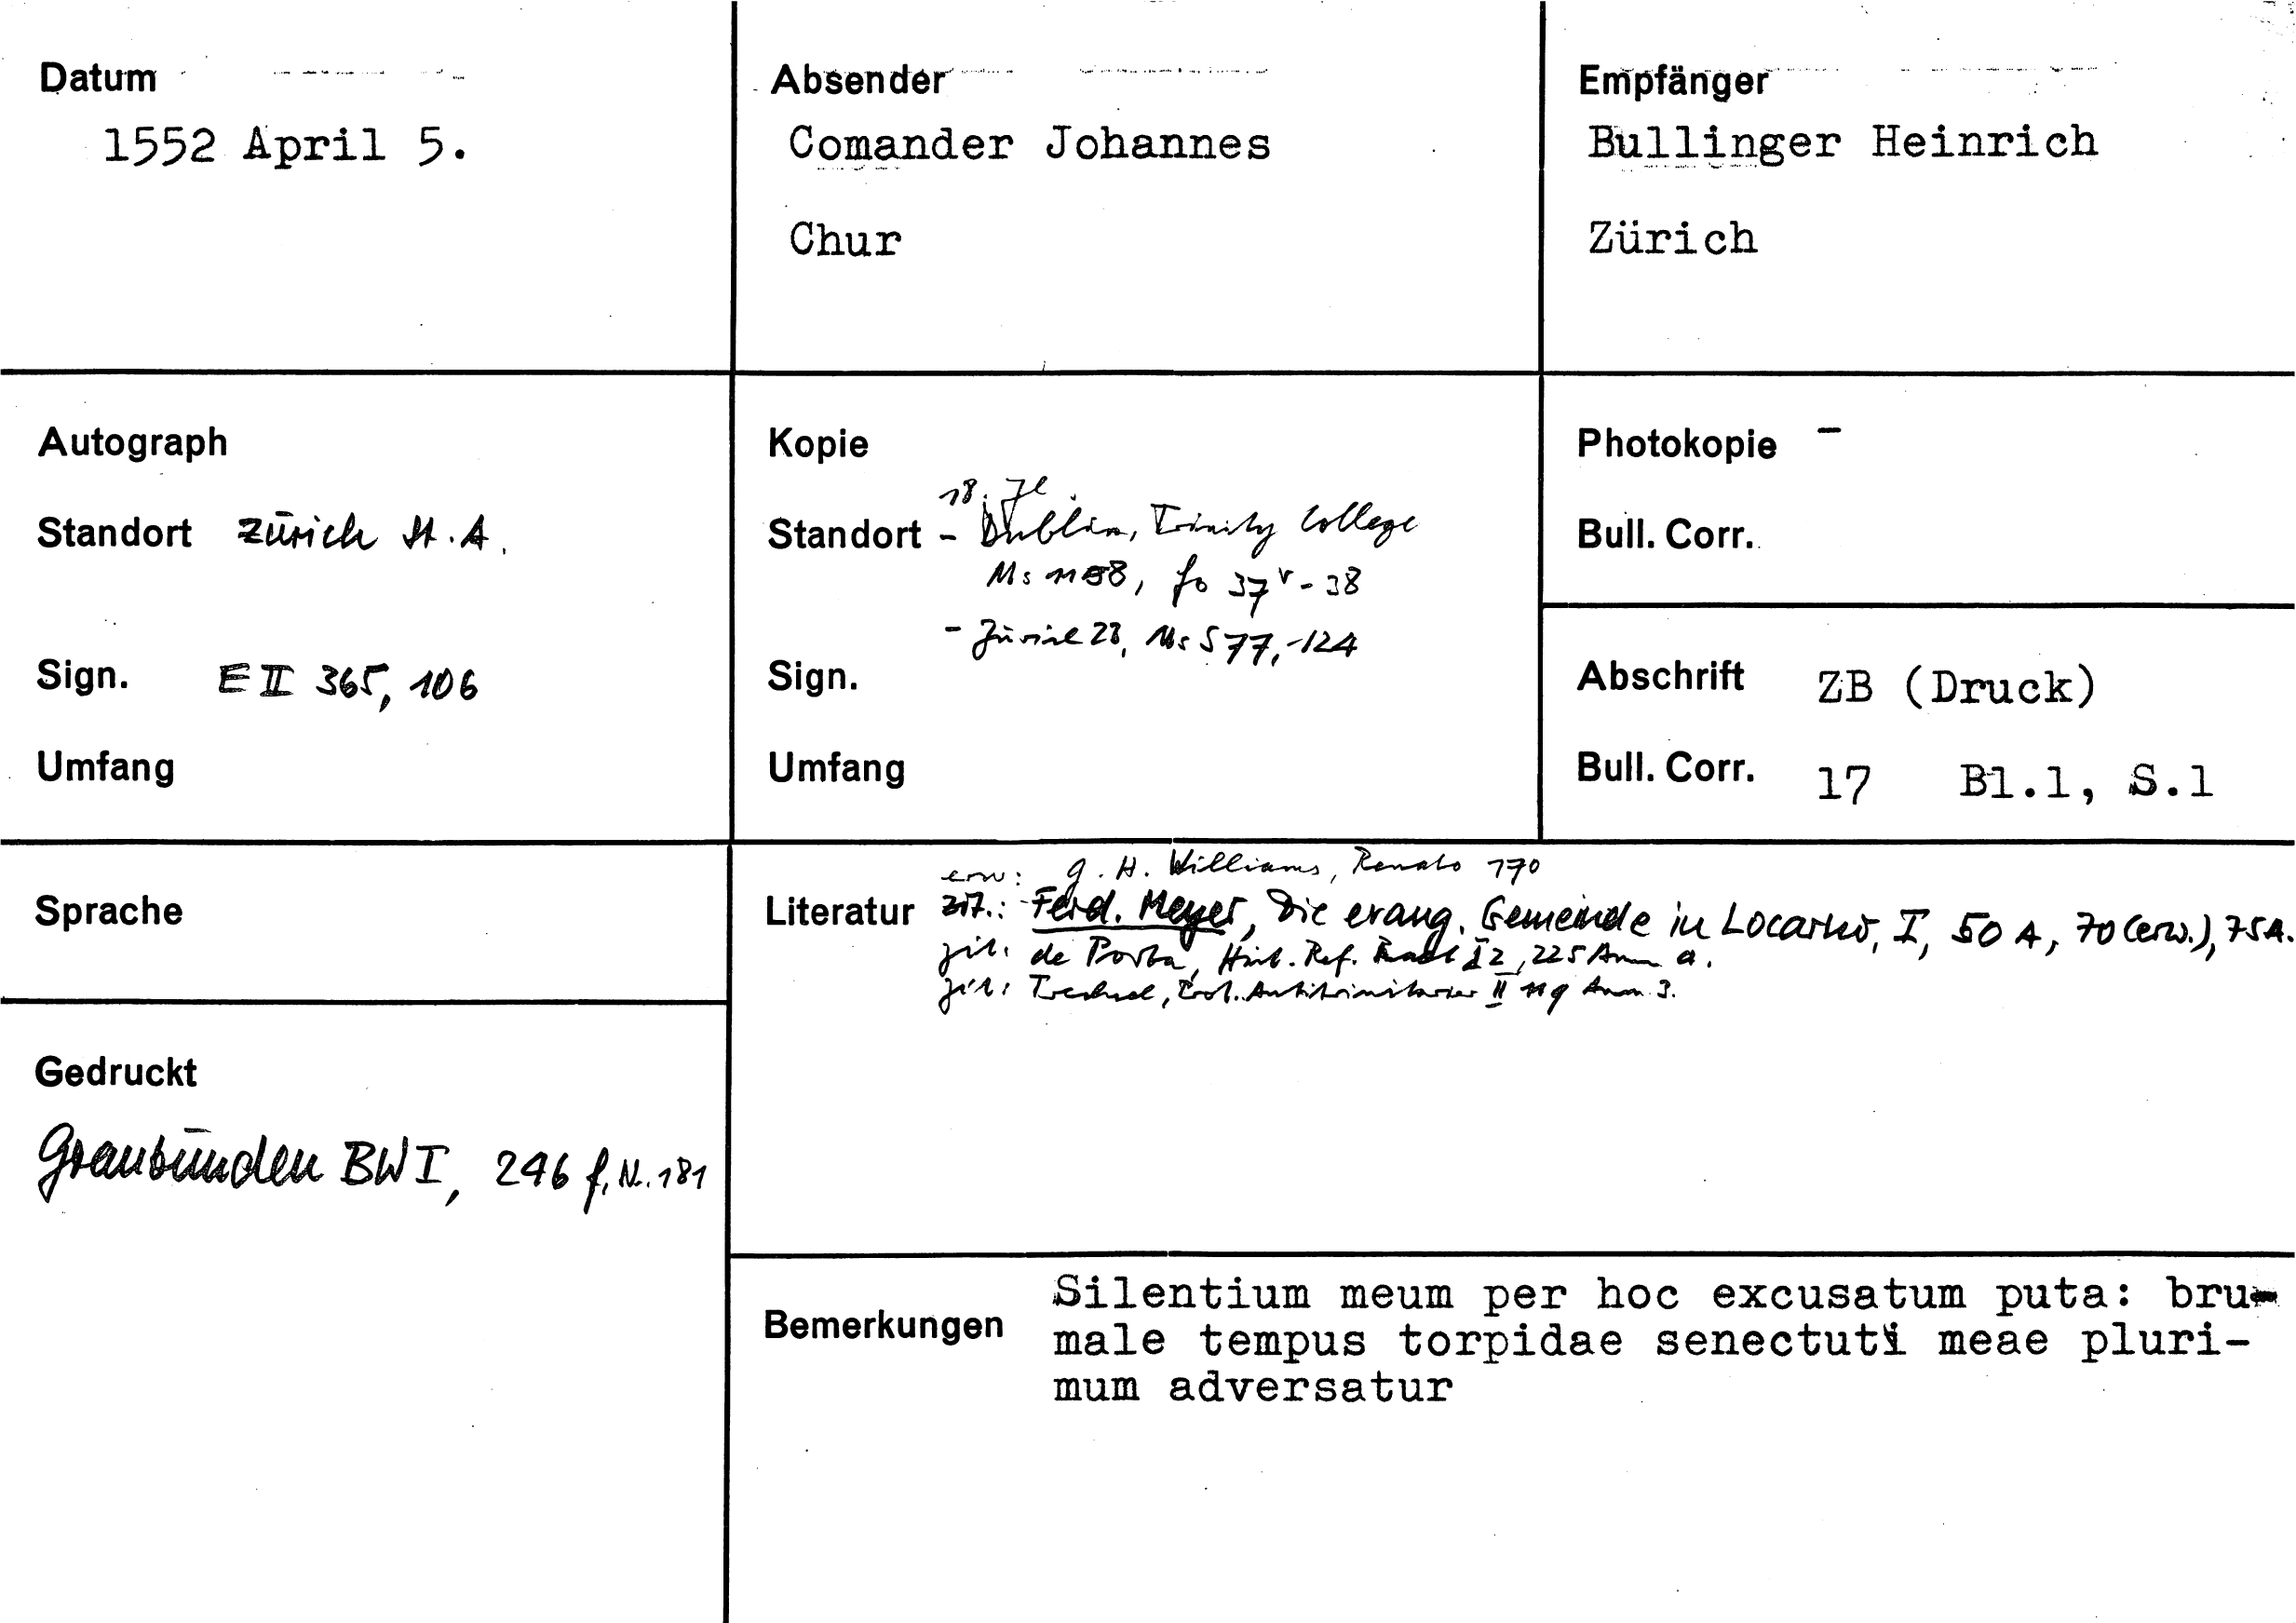 Datum
1552 April 5.
Absender
Comander Johannes
Chur
Empfänger
Bullinger Heinrich
Zürich
Autograph
Standort Zürich St. A.
Sign. E II 365, 106
Umfang
Kopie
18. Jh.
Standort - Dublin, Trinity College
Ms 1158, fo 37v - 38
- Zürich ZB, Ms S 77, 124
Sign.
Umfang
Photokopie -
Bull. Corr.
Abschrift ZB (Druck)
Bull. Corr. 17 Bl.1, S.1
Sprache
Gedruckt
Graubünden BW I, 246 f, N. 181
erw: G. H. Williams, Renato 170
Literatur zit.: Ferd. Meyer, Die evang. Gemeinde in Locarno, I, 50 A, 70 (erw.), 75 A.
zit: de Porta, Hist. Ref. I 2, 225 Anm a.
zit: Trechsel, Prot. Antitrinitarier II 119 Anm. 3.
Bemerkungen
Silentium meum per hoc excusatum puta: bru-
male tempus torpidae senectuti meae pluri-
mum adversatur